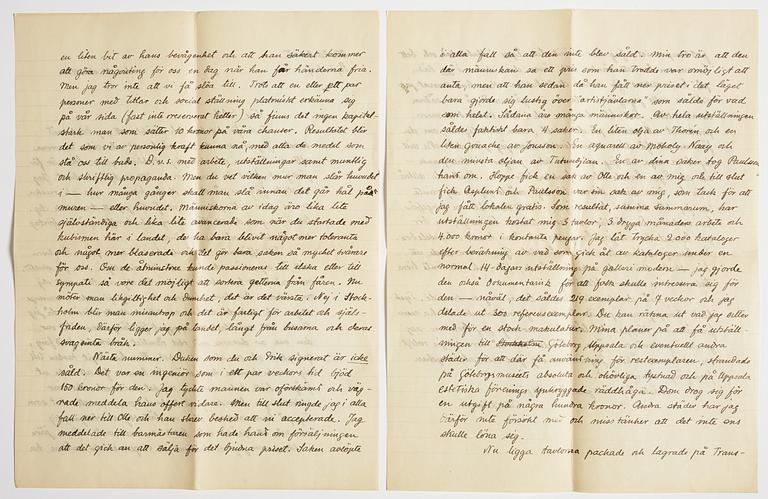 en liten bit av hans bevågenhet och att han säkert kommer
att göra någonting för oss en dag när han får händerna fria.
Men jag tror inte att vi få slöa till. Trots att en eller ett par
personer med titlar och social ställning platoniskt erkänna sig
på vår sida (fast inte reserverat heller) så finns det ingen kapital-
stark man som sätter 10 kronor på våra chanser. Resultatet blir
det som vi av personlig kraft kunna nå, med alla de medel som
stå oss till buds. D.v.s. med arbete, utställningar samt muntlig
och skriftlig propaganda. Men du vet vilken mur man slår huvudet
i — hur många gånger skall man slå innan det går hål på
muren — eller huvudet. Människorna av idag äro lika lite
självständiga och lika lite avancerade som när du startade med
kubismen här i landet, de ha bara blivit något mer toleranta
och något mer blaserade och det gör bara saken så mycket svårare
för oss. Om de åtminstone kunde passionernas till elska eller till
sympati så vore det möjligt att sortera getterna från fåren. Nu
möter man likgiltighet och dumhet, det är det värsta. Nej i Stock-
holm blir man misantrop och det är farligt för arbetet och själs-
friden, därför ligger jag på landet, långt från busarna och deras
svagsinta bråk.
Nästa nummer. Duken som du och Erik signerat är icke
såld. Det var en ingeniör som i ett par veckors tid bjöd
150 kronor för den. Jag tyckte mannen var oförskämd och väg-
rade meddela hans offert vidare. Men till slut ringde jag i alla
fall ner till Olle och han skrev besked att ni accepterade. Jag
meddelade till barmästaren som hade hand om försäljningen
att det gick an att sälja för det bjudna priset. Saken avlöpte
i alla fall så att den inte blev såld. Min tro är att den
där människan sa ett pris som han trodde var omöjligt att
anta, men att han sedan då han fått ner priset i det läget
bara gjorde sig lustig över "artistfjantarna" som sålde för vad
som helst. Sådana äro många människor. Av hela utställningen
såldes faktiskt bara 4 saker. En liten olja av Thorén och en
liten Gouache av Jonson. En aquarell av Moholy Nagy och
den minsta oljan av Tutundjian. En av dina saker tog Paulsson
hand om. Hoppe fick en sak av Olle och en av mig och till slut
fick Asplund och Paulsson var sin sak av mig, som tack för att
jag fått lokalen gratis. Som resultat, summa summarum, har
utställningen kostat mig 3 tavlor, 3 dryga månaders arbete och
4.000 kronor i kontanta pengar. Jag lät trycka 2.000 kataloger
efter beräkning av vad som gick åt av kataloger under en
normal 14-dagars utställning på galleri modern — jag gjorde
den också dokumentarisk för att folk skulle intressera sig för
den — nåväl, det såldes 219 exemplar på 7 veckor och jag
delade ut 303 referensexemplar. Du kan räkna ut vad jag sitter
med för en stock makulatur. Mina planer på att få utställ-
ningen till Göteborg, Uppsala och eventuellt andra
städer för att där få användning för restexemplaren, strandade
på Göteborgsmuseets absoluta och ohövliga tystnad och på Uppsala
estetiska förenings ynkryggade räddhåga. Dom drog sig för
en utgift på några hundra kronor. Andra städer har jag
därför inte försökt med och misstänker att det inte ens
skulle löna sig.
Nu ligga tavlorna packade och lagrade på Trans-